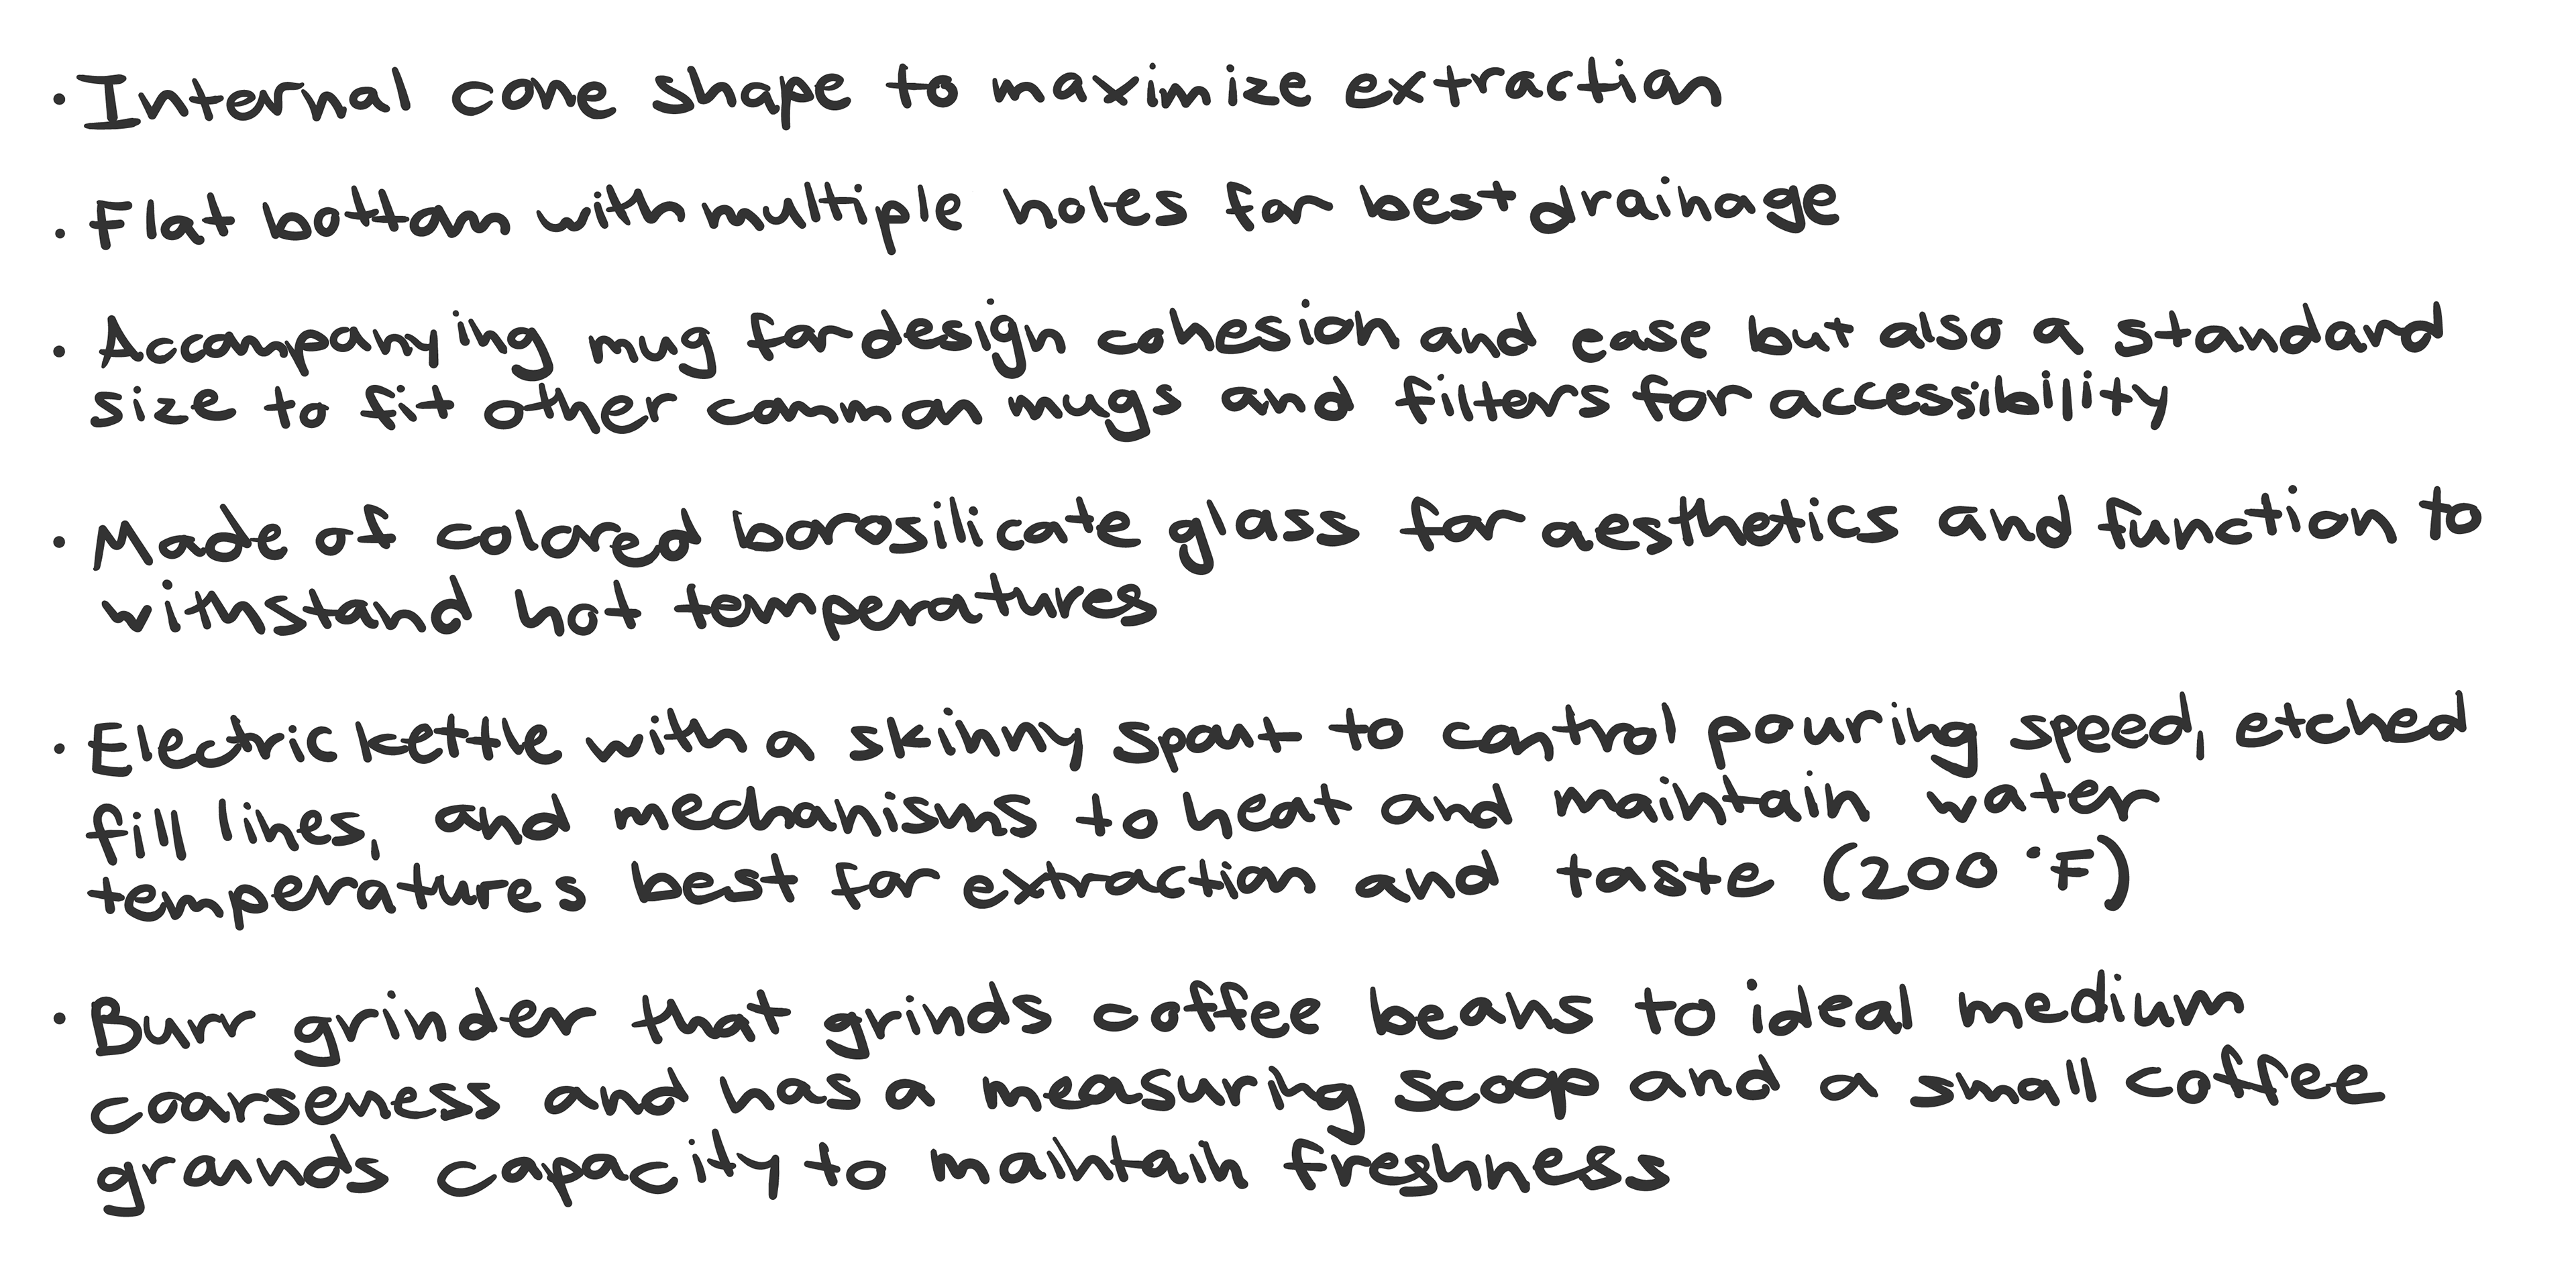 · Internal cone shape to maximize extraction
· Flat bottom with multiple holes for best drainage
· Accompanying mug for design cohesion and ease but also a standard
size to fit other common mugs and filters for accessibility
· Made of colored borosilicate glass for aesthetics and function to
withstand hot temperatures
· Electric kettle with a skinny spout to control pouring speed, etched
fill lines, and mechanisms to heat and maintain water
temperatures best for extraction and taste (200 °F)
· Burr grinder that grinds coffee beans to ideal medium
coarseness and has a measuring scoop and a small coffee
grounds capacity to maintain freshness